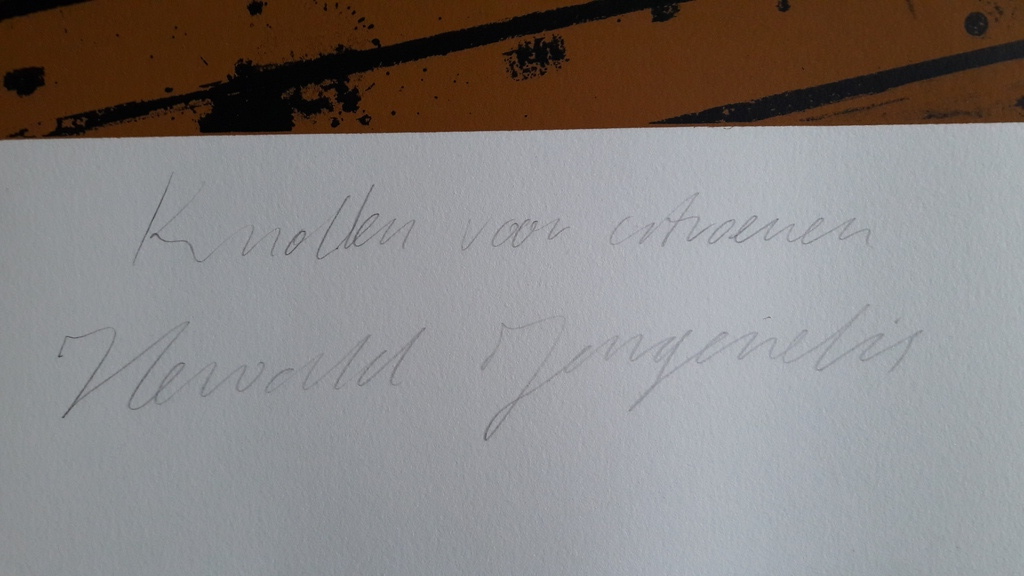 Knollen voor citroenen
Herwolld Jongenelis